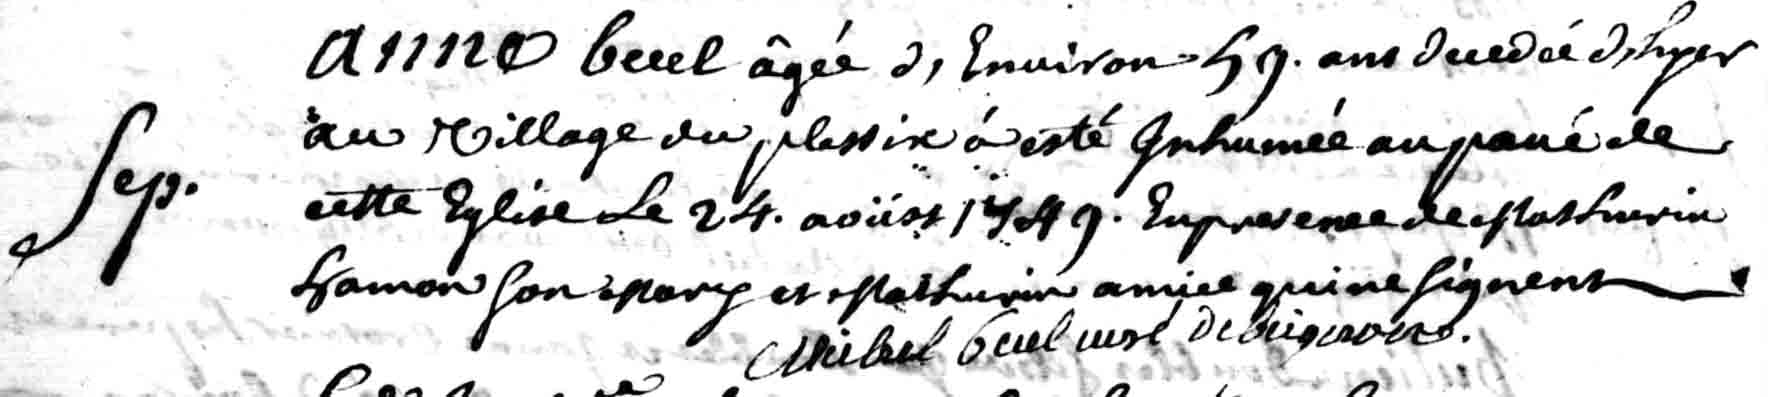 anne becel âgée d'Environ 59. ans decedée d'hyer
Sep. au Village du plessix a esté Inhumée au pavé de
cette Eglise Le 24. aoüst 1749. En presence de Mathurin
hamon Son Mary et Mathurin amice qui ne Signent
Michel becel curé de